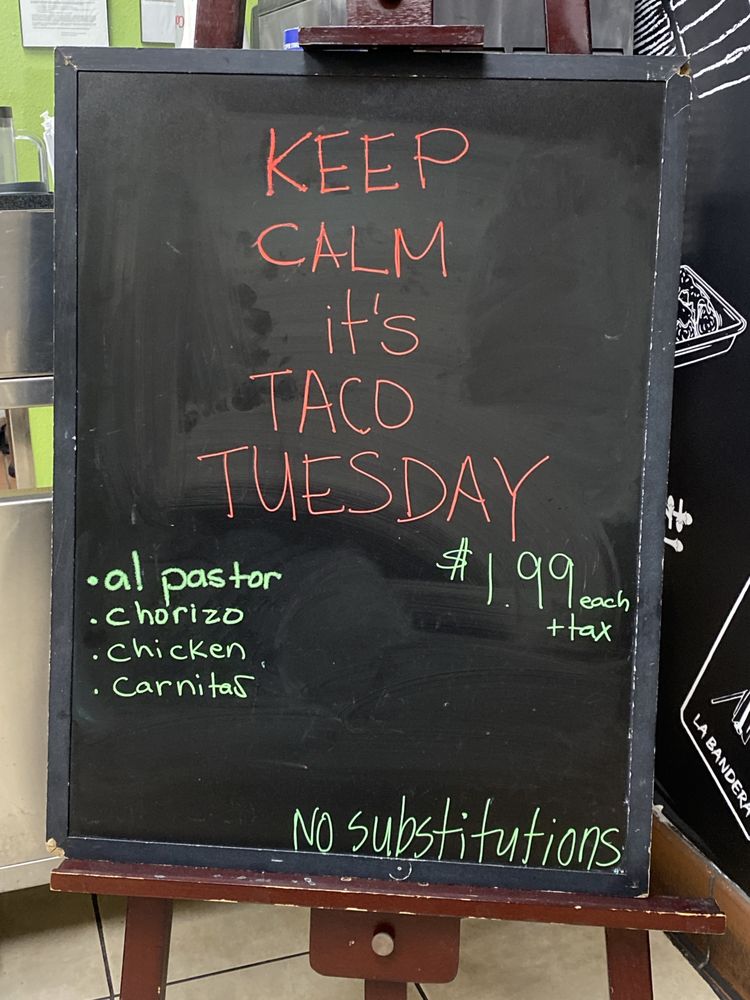 KEEP
CALM
it's
TACO
TUESDAY
• al pastor
• chorizo
• chicken
• carnitas
$1.99 each
+tax
No substitutions
LA BANDERA